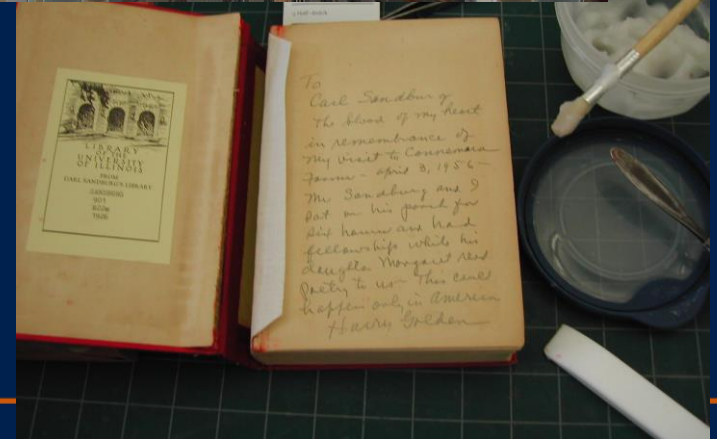 LIBRARY
OF THE
UNIVERSITY
OF ILLINOIS
FROM
CARL SANDBURG'S LIBRARY
SANDBURG
901
1926
To
Carl Sandburg
The blood of my heart
in remembrance of
my visit to Connemara
Farm - april 3, 1956 -
Mr Sandburg and I
sat on his porch for
six hours and had
fellowship while his
daughter Margaret read
Poetry to us - This could
happen only in America
Harry Golden